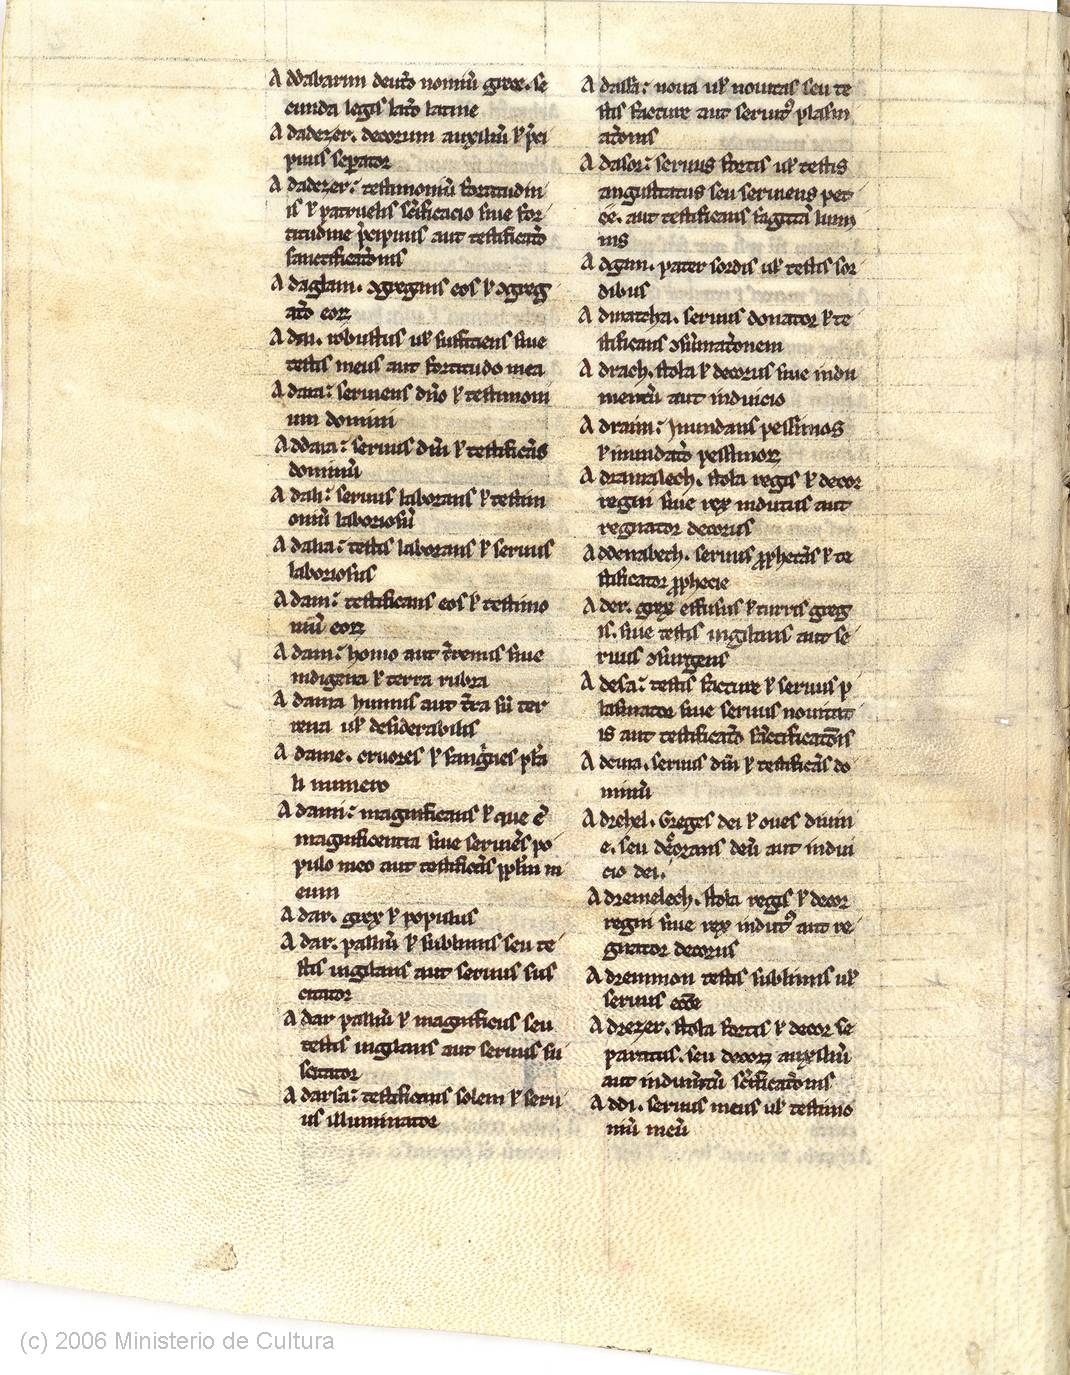 A ddabarim deut̄o nomiū grece. se
cunda legis lat̄o latine
A dadezer. decorum auxiliū ꝉ p̄ci
puus sep̱ator
A dadezer: testimoniū fortitudin
is ꝉ patruelis sc̄ificacio siue for
titudine p̄cipuus aut testificat̄o
sanctificat̄onis
A daglam. ꝯgregans eos ꝉ ꝯgreg
at̄o eoꝝ
A dai. robustus uł sufficiens siue
testis meus aut fortitudo mea
A daia: seruiens dn̄o ꝉ testimoni
um domini
A ddaia: seruus dn̄i ꝉ testificās
dominū
A dali: seruus laborans ꝉ testim
oniū laboriosū
A dalia: testis laborans ꝉ seruus
laboriosus
A dam: testificans eos ꝉ testimo
niū eoꝝ
A dam: homo aut t̄renus siue
indigena ꝉ terra rubra
A dama humus aut t̄ra siū ter
rena uł desiderabilis
A dame. cruores ꝉ sanḡnes pl̄a
li numero
A dami: magnificans ꝉ que ē
magnificentia siue seruiēs po
pulo meo aut testificās pp̄lm m
eum
A dar. grex ꝉ populus
A dar: palliū ꝉ sublimis seu te
stis uigilans aut seruus sus
citator
A dar palliū ꝉ magnificus seu
testis uigilans aut seruus su
scitator
A darsa: testificans solem ꝉ seru
us illuminatoe
A dassa: noua uł nouitas seu te
stis facture aut seruitꝰ plasm
at̄onis
A dasor: seruus fortis uł testis
angustiatus seu seruiens pet
ēe. aut testificans sagittā lum
inis
A dgam. pater sordis uł testis sor
dibus
A dmatha. seruus donator ꝉ te
stificans ꝯsūmat̄onem
A drach. stola ꝉ decorus siue indu
mentū aut induicio
A draim: Inundans pessimos
ꝉ inundat̄o pessimoꝝ
A dramalech. stola regis ꝉ decor
regni siue rex indutus aut
regnator decorus
A ddenabech. seruus ꝓphetās ꝉ te
stificator ꝓphecie
A der. grex effusus ꝉ turris greg
is. siue testis uigilans aut se
ruus ꝯsurgens
A desa: testis facture ꝉ seruus p
lasmator siue seruus nouitat
is aut testificat̄o sc̄tificat̄onis
A deuia. seruus dn̄i ꝉ testificās do
minū
A drehel. Greges dei ꝉ oues diuin
e. seu decorans deū aut indui
cio dei.
A dremelech. stola regis ꝉ decor
regni siue rex indutꝰ aut re
gnator decorus
A dremmon testis sublimis uł
seruus
A drezer. stola fortis ꝉ decor se
paratus. seu decoꝝ auxiliū
aut indumtū sc̄ificat̄onis
A ddi. seruus meus uł testimo
niū meū
(c) 2006 Ministerio de Cultura